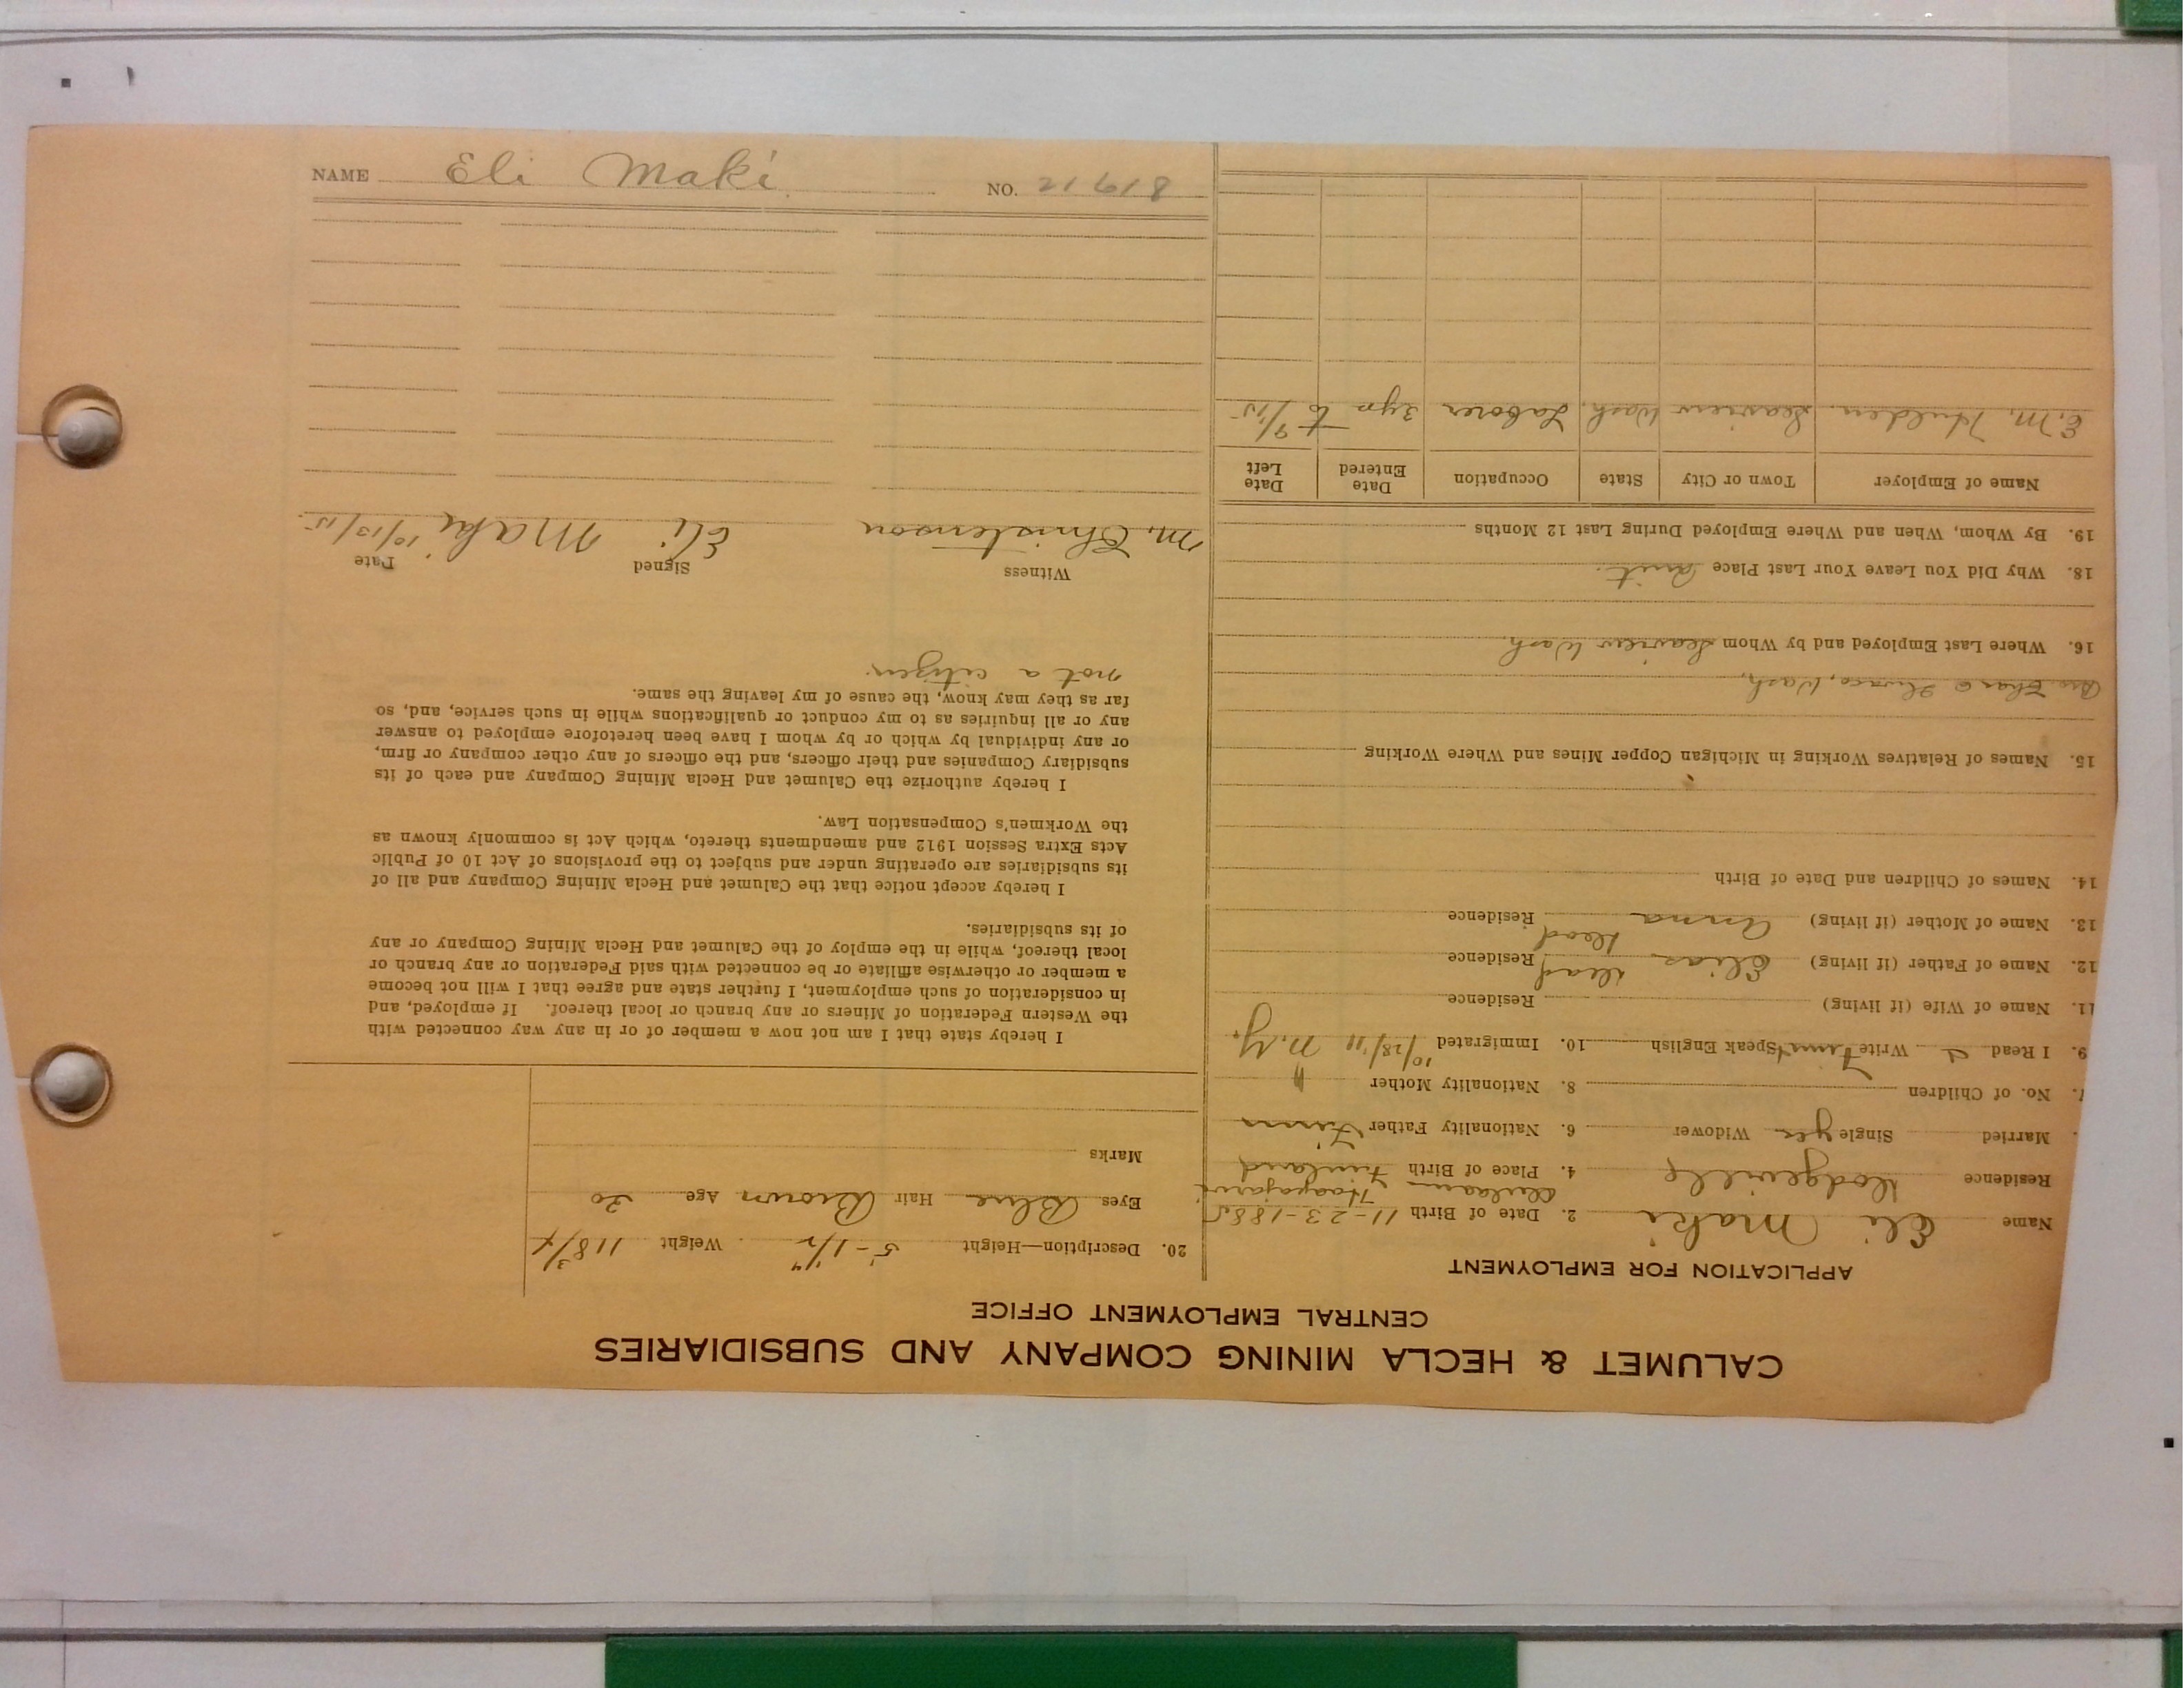 CALUMET & HECLA MINING COMPANY AND SUBSIDIARIES
CENTRAL EMPLOYMENT OFFICE
APPLICATION FOR EMPLOYMENT
Name Eli Maki 2. Date of Birth 11-23-1885
Residence Dodgeville 4. Place of Birth Finland
Married Single yes Widower 6. Nationality Father Finn
7. No. of Children 8. Nationality Mother "
9. I Read & Write Finn Speak English 10. Immigrated 10/28/11 N.Y.
11. Name of Wife (if living) Residence
12. Name of Father (if living) Elias dead Residence
13. Name of Mother (if living) Anna dead Residence
14. Names of Children and Date of Birth
15. Names of Relatives Working in Michigan Copper Mines and Where Working
Bro Chas @ Ilwaco, Wash.
16. Where Last Employed and by Whom Seaview Wash
18. Why Did You Leave Your Last Place Quit.
19. By Whom, When and Where Employed During Last 12 Months
Name of Employer Town or City State Occupation Date Entered Date Left
E.M. Hulden Seaview Wash. Laborer 3 yrs to 9/15
20. Description—Height 5-1 1/2" Weight 118 3/4
Eyes Blue Hair Brown Age 30
Marks
I hereby state that I am not now a member of or in any way connected with
the Western Federation of Miners or any branch or local thereof. If employed, and
in consideration of such employment, I further state and agree that I will not become
a member or otherwise affiliate or be connected with said Federation or any branch or
local thereof, while in the employ of the Calumet and Hecla Mining Company or any
of its subsidiaries.
I hereby accept notice that the Calumet and Hecla Mining Company and all of
its subsidiaries are operating under and subject to the provisions of Act 10 of Public
Acts Extra Session 1912 and amendments thereto, which Act is commonly known as
the Workmen's Compensation Law.
I hereby authorize the Calumet and Hecla Mining Company and each of its
subsidiary Companies and their officers, and the officers of any other company or firm,
or any individual by which or by whom I have been heretofore employed to answer
any or all inquiries as to my conduct or qualifications while in such service, and, so
far as they may know, the cause of my leaving the same.
not a citizen.
Witness Signed Date
M. Christenson Eli Maki 10/13/15
NAME Eli Maki NO. 21618